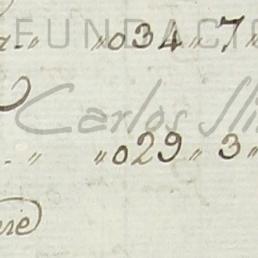 FUNDACIÓ
„ „034„ 7„
Carlos Sli
„ „029„ 3„